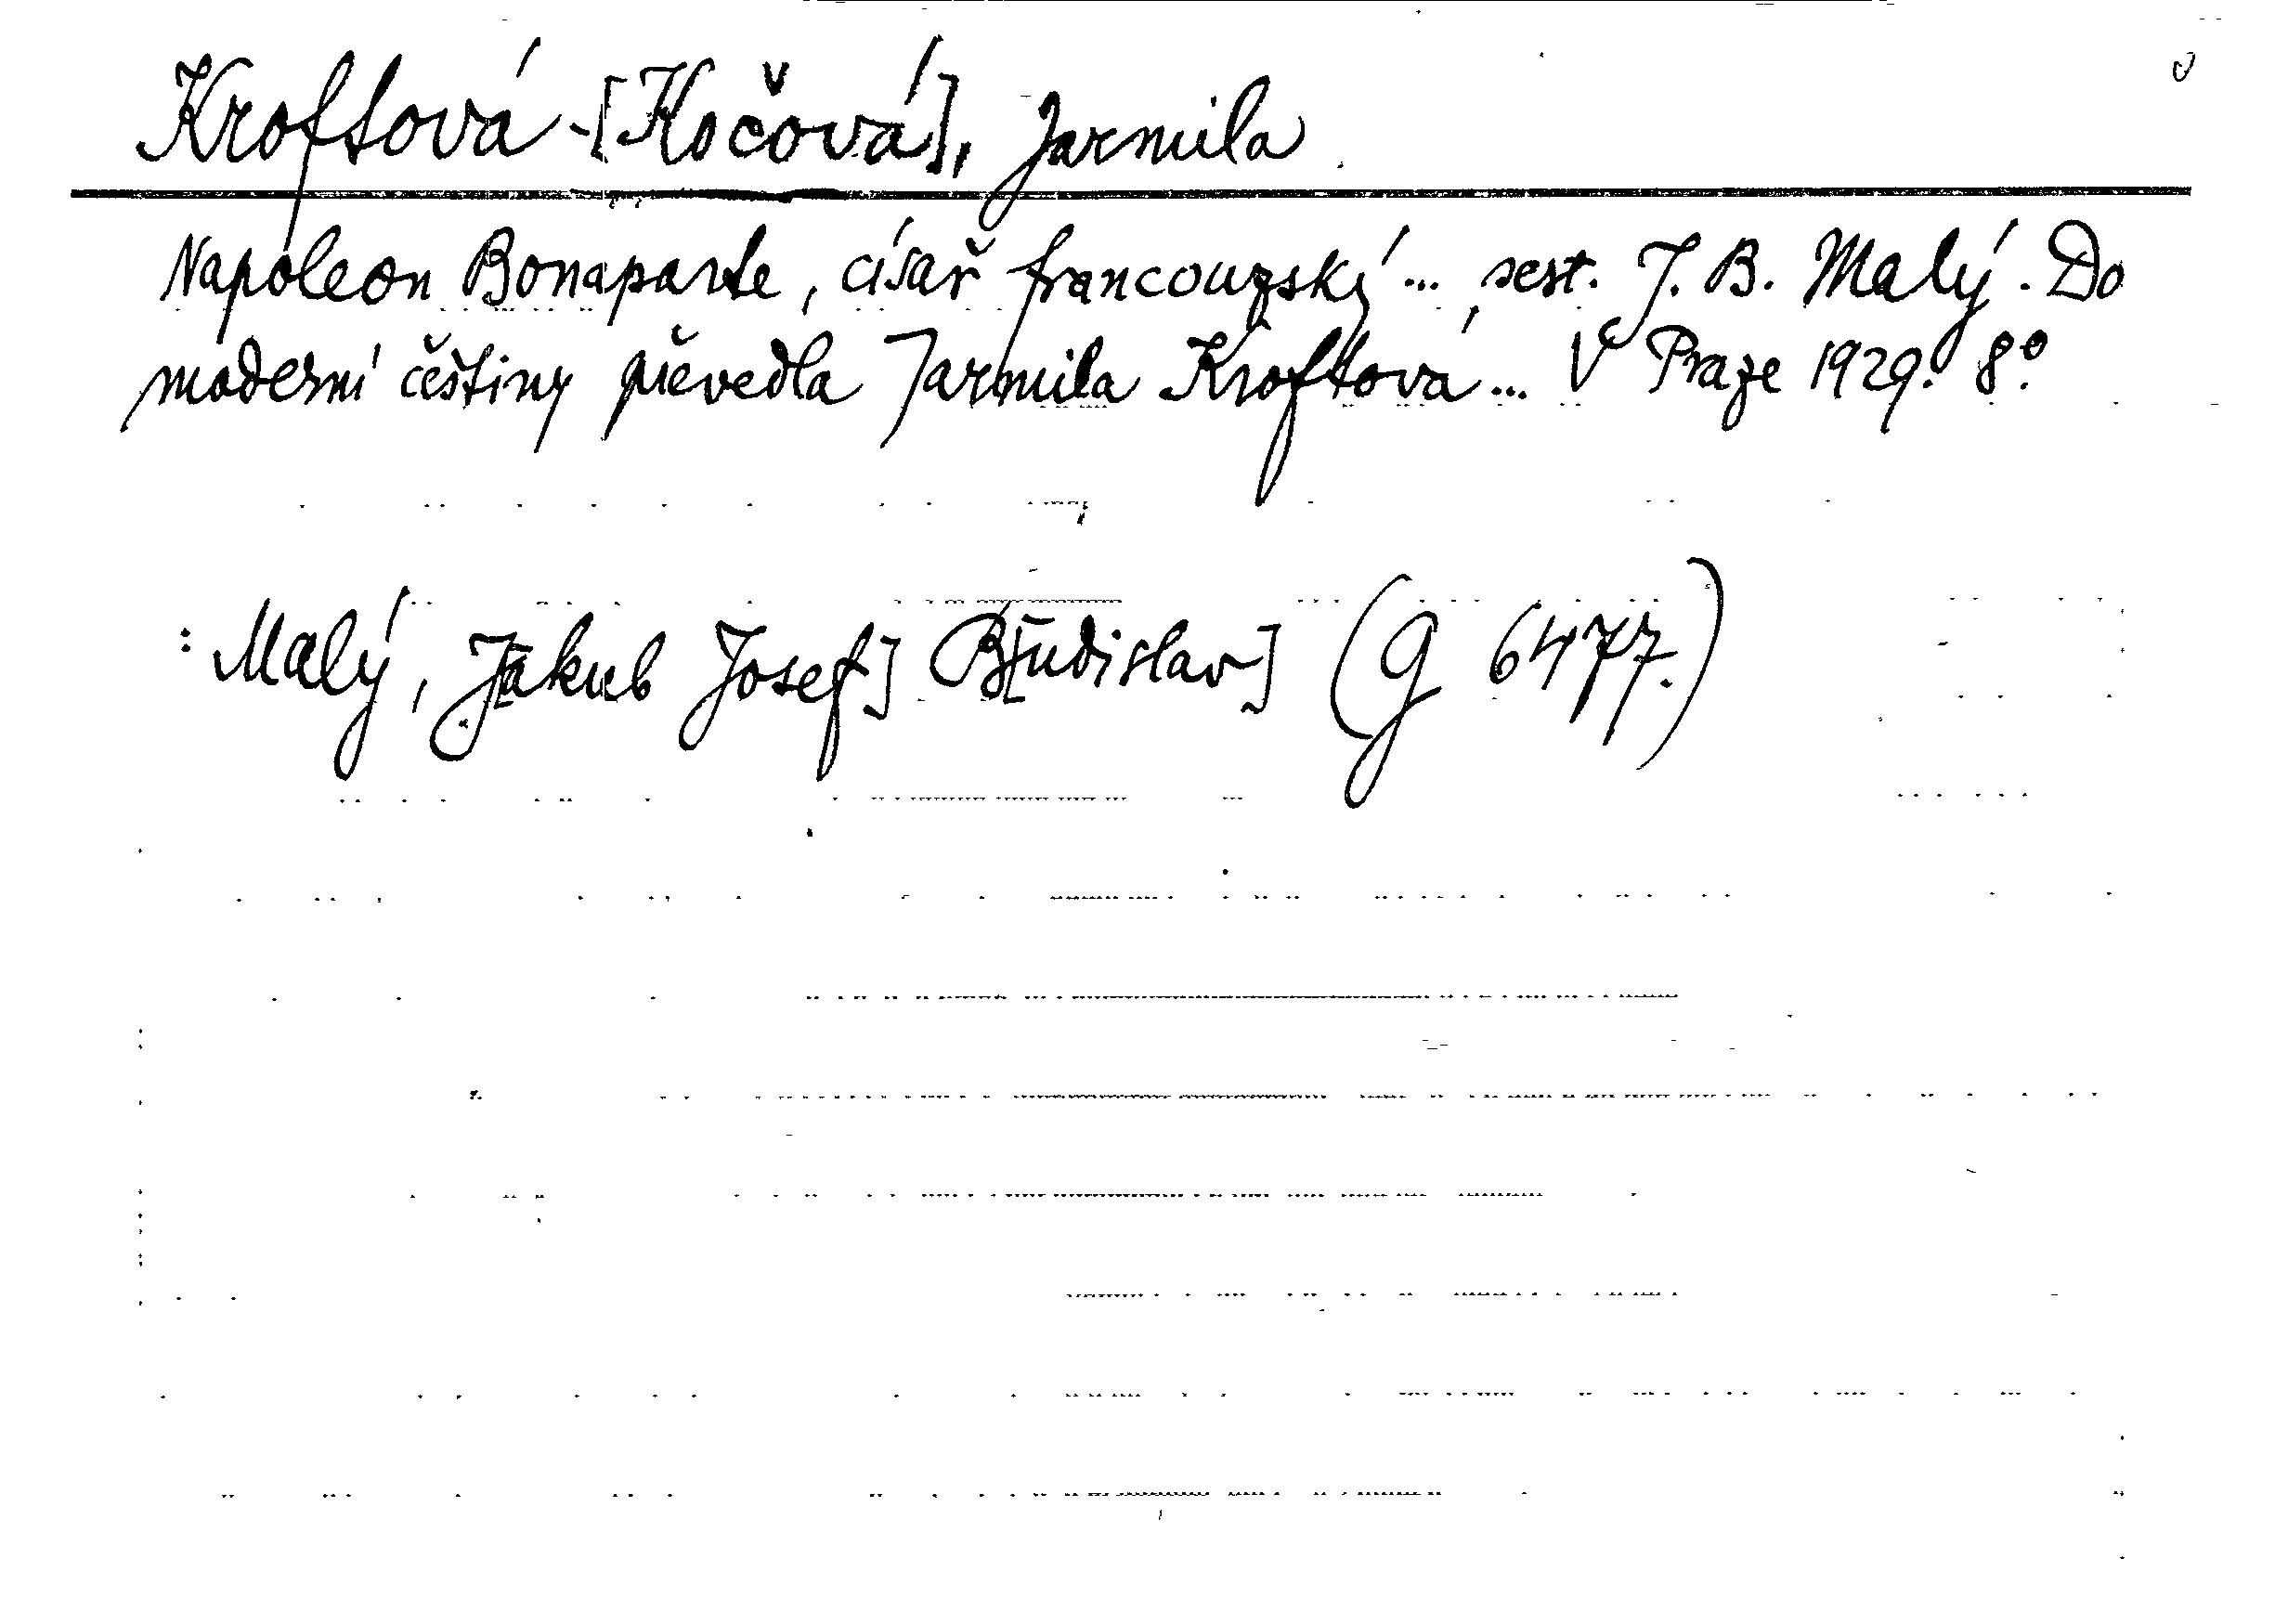 Kroftová-[Kočová], Jarmila
Napoleon Bonaparte, císař francouzský... sest. J. B. Malý. Do
moderní češtiny převedla Jarmila Kroftová... V Praze 1929. 8°.
: Malý, J[akub Josef] B[udislav] (G 6477.)